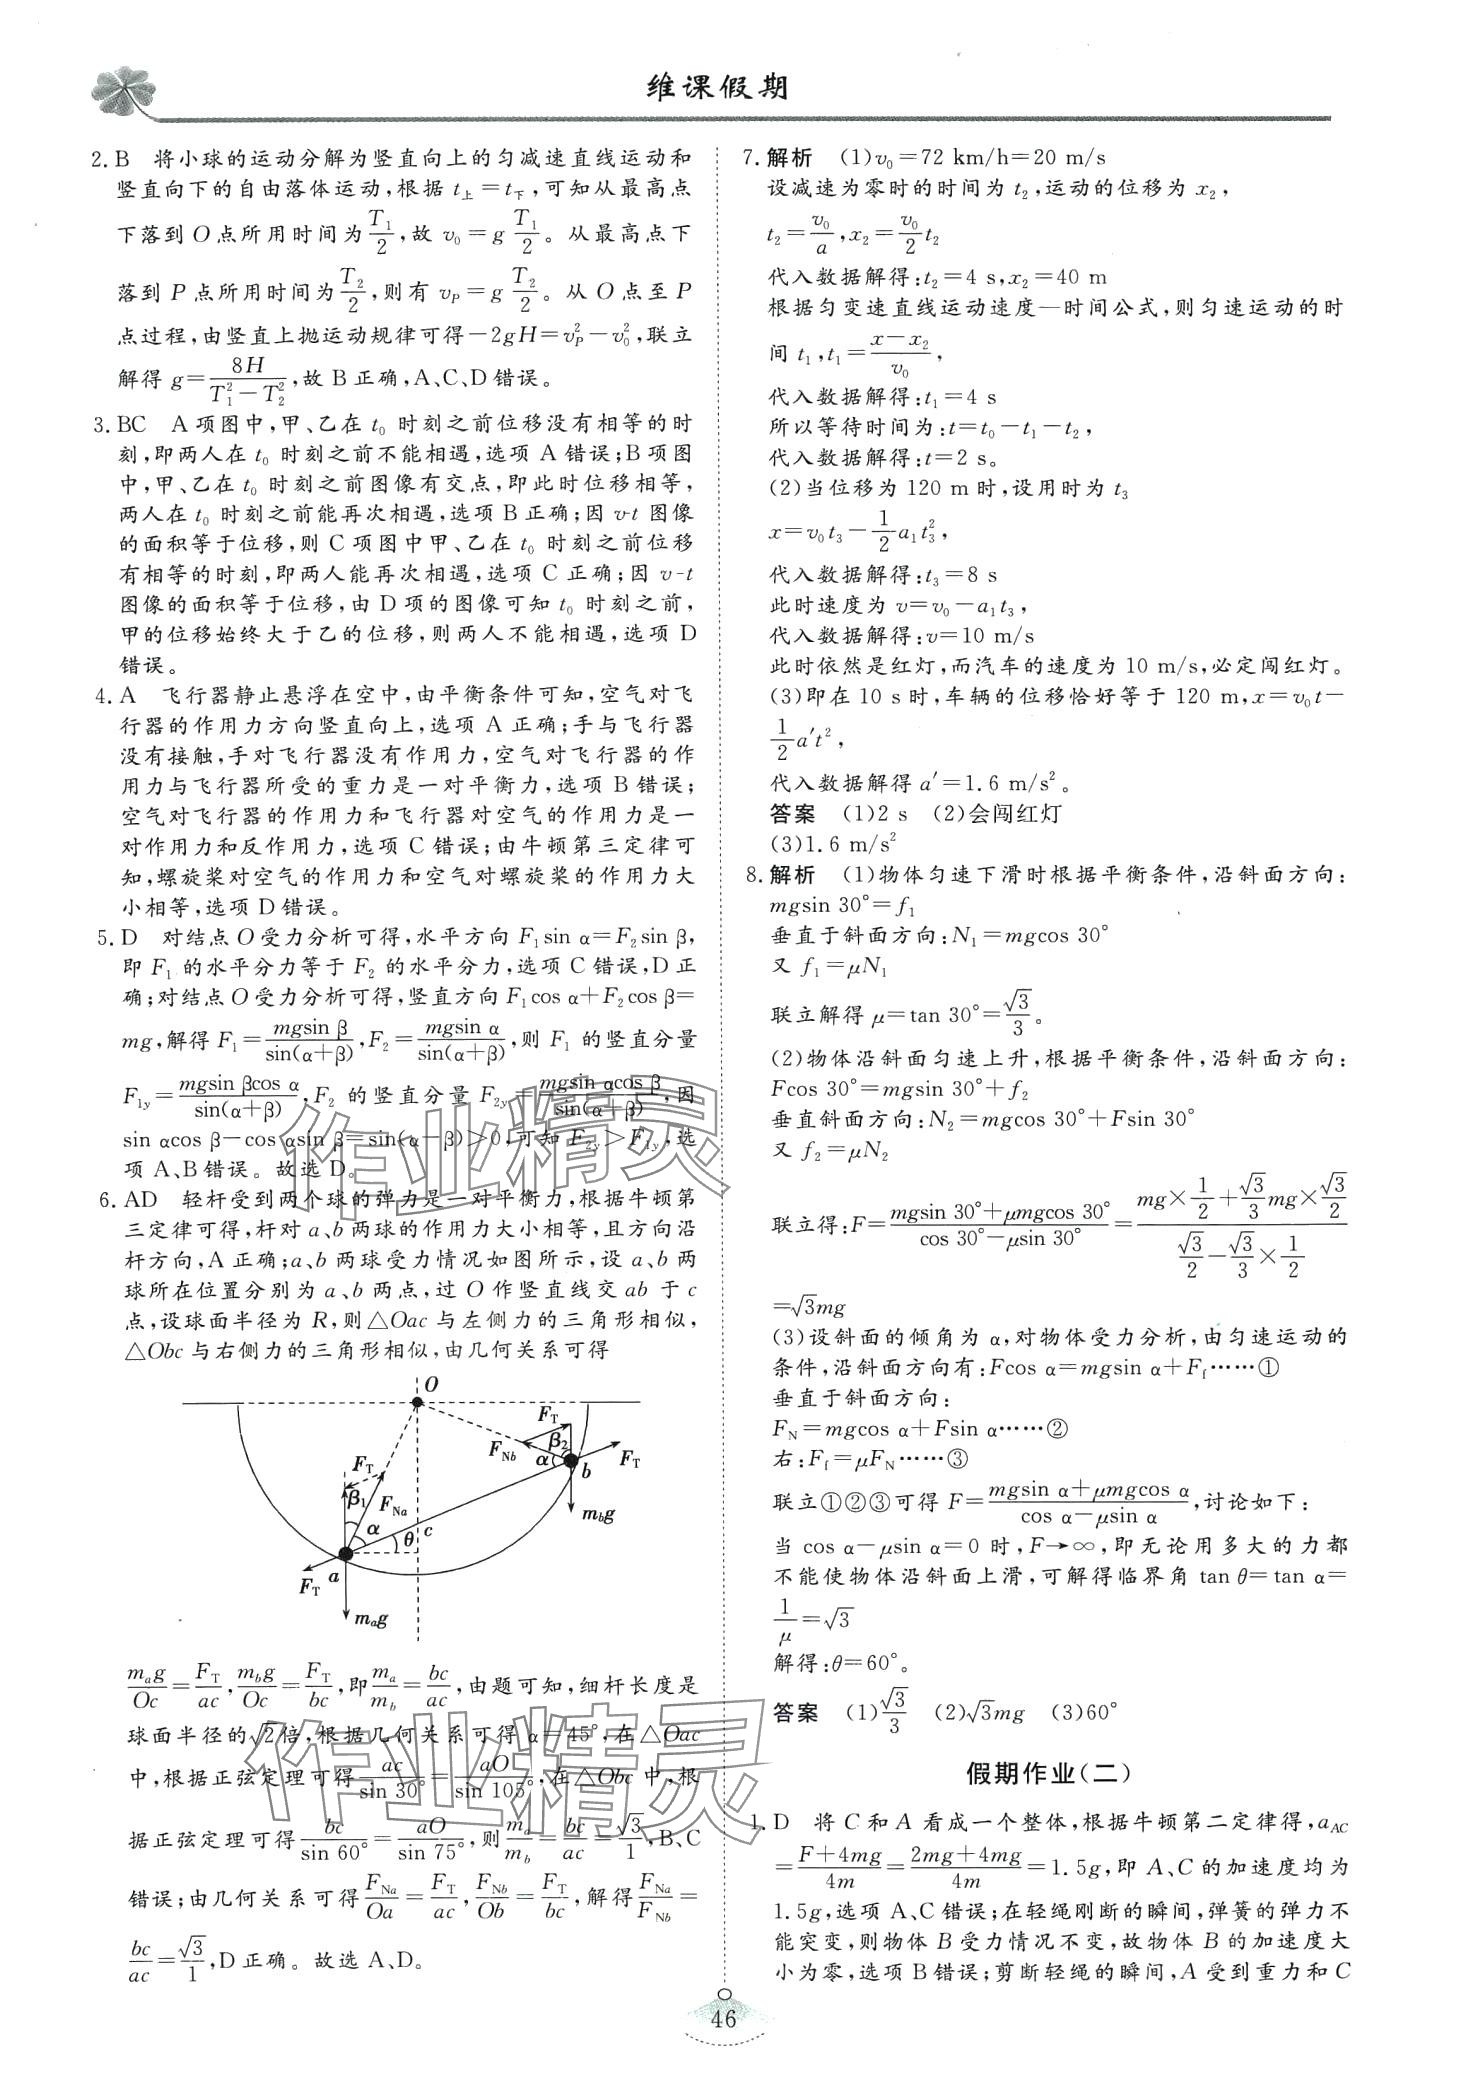 维课假期
2. B　将小球的运动分解为竖直向上的匀减速直线运动和
竖直向下的自由落体运动,根据 t上=t下,可知从最高点
下落到 O 点所用时间为 T₁/2,故 v₀=g T₁/2。从最高点下
落到 P 点所用时间为 T₂/2,则有 v_P=g T₂/2。从 O 点至 P
点过程,由竖直上抛运动规律可得-2gH=v_P²-v₀²,联立
解得 g=8H/(T₁²-T₂²),故 B 正确,A、C、D 错误。
3. BC　A 项图中,甲、乙在 t₀ 时刻之前位移没有相等的时
刻,即两人在 t₀ 时刻之前不能相遇,选项 A 错误;B 项图
中,甲、乙在 t₀ 时刻之前图像有交点,即此时位移相等,
两人在 t₀ 时刻之前能再次相遇,选项 B 正确;因 v-t 图像
的面积等于位移,则 C 项图中甲、乙在 t₀ 时刻之前位移
有相等的时刻,即两人能再次相遇,选项 C 正确;因 v-t
图像的面积等于位移,由 D 项的图像可知 t₀ 时刻之前,
甲的位移始终大于乙的位移,则两人不能相遇,选项 D
错误。
4. A　飞行器静止悬浮在空中,由平衡条件可知,空气对飞
行器的作用力方向竖直向上,选项 A 正确;手与飞行器
没有接触,手对飞行器没有作用力,空气对飞行器的作
用力与飞行器所受的重力是一对平衡力,选项 B 错误;
空气对飞行器的作用力和飞行器对空气的作用力是一
对作用力和反作用力,选项 C 错误;由牛顿第三定律可
知,螺旋桨对空气的作用力和空气对螺旋桨的作用力大
小相等,选项 D 错误。
5. D　对结点 O 受力分析可得,水平方向 F₁sin α=F₂sin β,
即 F₁ 的水平分力等于 F₂ 的水平分力,选项 C 错误,D 正
确;对结点 O 受力分析可得,竖直方向 F₁cos α+F₂cos β=
mg,解得 F₁=mgsin β/sin(α+β),F₂=mgsin α/sin(α+β),则 F₁ 的竖直分量
F₁y=mgsin βcos α/sin(α+β),F₂ 的竖直分量 F₂y=mgsin αcos β/sin(α+β),因
sin αcos β-cos αsin β=sin(α-β)>0,可知 F₂y>F₁y,选
项 A、B 错误。故选 D。
6. AD　轻杆受到两个球的弹力是一对平衡力,根据牛顿第
三定律可得,杆对 a、b 两球的作用力大小相等,且方向沿
杆方向,A 正确;a、b 两球受力情况如图所示,设 a、b 两
球所在位置分别为 a、b 两点,过 O 作竖直线交 ab 于 c
点,设球面半径为 R,则△Oac 与左侧力的三角形相似,
△Obc 与右侧力的三角形相似,由几何关系可得
O
F_T
F_Nb β₂
α b F_T
F_T
β₁ F_Na m_bg
α θ c
a
F_T
m_ag
m_ag/Oc=F_T/ac,m_bg/Oc=F_T/bc,即 m_a/m_b=bc/ac,由题可知,细杆长度是
球面半径的√2倍,根据几何关系可得 α=45°,在△Oac
中,根据正弦定理可得 ac/sin 30°=aO/sin 105°,在△Obc 中,根
据正弦定理可得 bc/sin 60°=aO/sin 75°,则 m_a/m_b=bc/ac=√3/1,B、C
错误;由几何关系可得 F_Na/Oa=F_T/ac,F_Nb/Ob=F_T/bc,解得 F_Na/F_Nb=
bc/ac=√3/1,D 正确。故选 A、D。
7. 解析　(1)v₀=72 km/h=20 m/s
设减速为零时的时间为 t₂,运动的位移为 x₂,
t₂=v₀/a,x₂=v₀/2 t₂
代入数据解得:t₂=4 s,x₂=40 m
根据匀变速直线运动速度—时间公式,则匀速运动的时
间 t₁,t₁=(x-x₂)/v₀,
代入数据解得:t₁=4 s
所以等待时间为:t=t₀-t₁-t₂,
代入数据解得:t=2 s。
(2)当位移为 120 m 时,设用时为 t₃
x=v₀t₃-1/2 a₁t₃²,
代入数据解得:t₃=8 s
此时速度为 v=v₀-a₁t₃,
代入数据解得:v=10 m/s
此时依然是红灯,而汽车的速度为 10 m/s,必定闯红灯。
(3)即在 10 s 时,车辆的位移恰好等于 120 m,x=v₀t-
1/2 a′t²,
代入数据解得 a′=1.6 m/s²。
答案　(1)2 s　(2)会闯红灯
(3)1.6 m/s²
8. 解析　(1)物体匀速下滑时根据平衡条件,沿斜面方向:
mgsin 30°=f₁
垂直于斜面方向:N₁=mgcos 30°
又 f₁=μN₁
联立解得 μ=tan 30°=√3/3。
(2)物体沿斜面匀速上升,根据平衡条件,沿斜面方向:
Fcos 30°=mgsin 30°+f₂
垂直斜面方向:N₂=mgcos 30°+Fsin 30°
又 f₂=μN₂
联立得:F=(mgsin 30°+μmgcos 30°)/(cos 30°-μsin 30°)=(mg×1/2+√3/3mg×√3/2)/(√3/2-√3/3×1/2)
=√3mg
(3)设斜面的倾角为 α,对物体受力分析,由匀速运动的
条件,沿斜面方向有:Fcos α=mgsin α+F_f……①
垂直于斜面方向:
F_N=mgcos α+Fsin α……②
右:F_f=μF_N……③
联立①②③可得 F=(mgsin α+μmgcos α)/(cos α-μsin α),讨论如下:
当 cos α-μsin α=0 时,F→∞,即无论用多大的力都
不能使物体沿斜面上滑,可解得临界角 tan θ=tan α=
1/μ=√3
解得:θ=60°。
答案　(1)√3/3　(2)√3mg　(3)60°
假期作业(二)
1. D　将 C 和 A 看成一个整体,根据牛顿第二定律得,a_AC
=(F+4mg)/4m=(2mg+4mg)/4m=1.5g,即 A、C 的加速度均为
1.5g,选项 A、C 错误;在轻绳刚断的瞬间,弹簧的弹力不
能突变,则物体 B 受力情况不变,故物体 B 的加速度大
小为零,选项 B 错误;剪断轻绳的瞬间,A 受到重力和 C
46
作业精灵
作业精灵